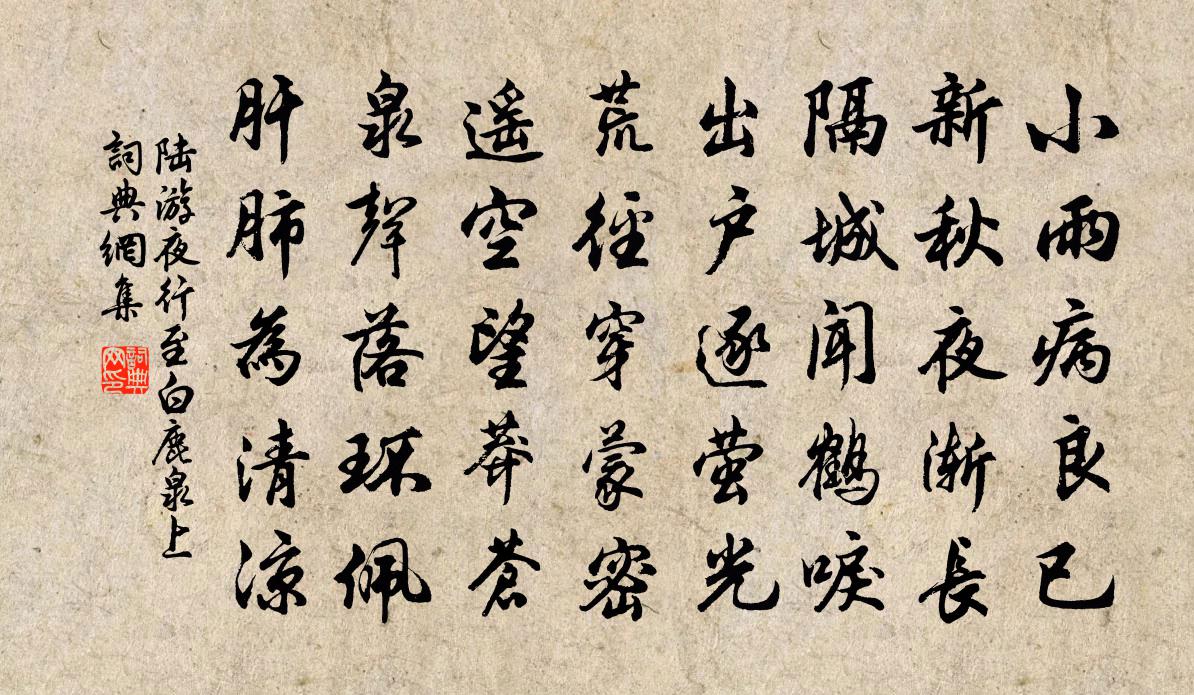 小雨病良已
新秋夜渐長
隔城闻鶴唳
出户逐萤光
荒徑穿蒙密
遥空望莽蒼
泉聲落環佩
肝肺為清凉
陆游夜行至白鹿泉上
詞典網集
詞典网印